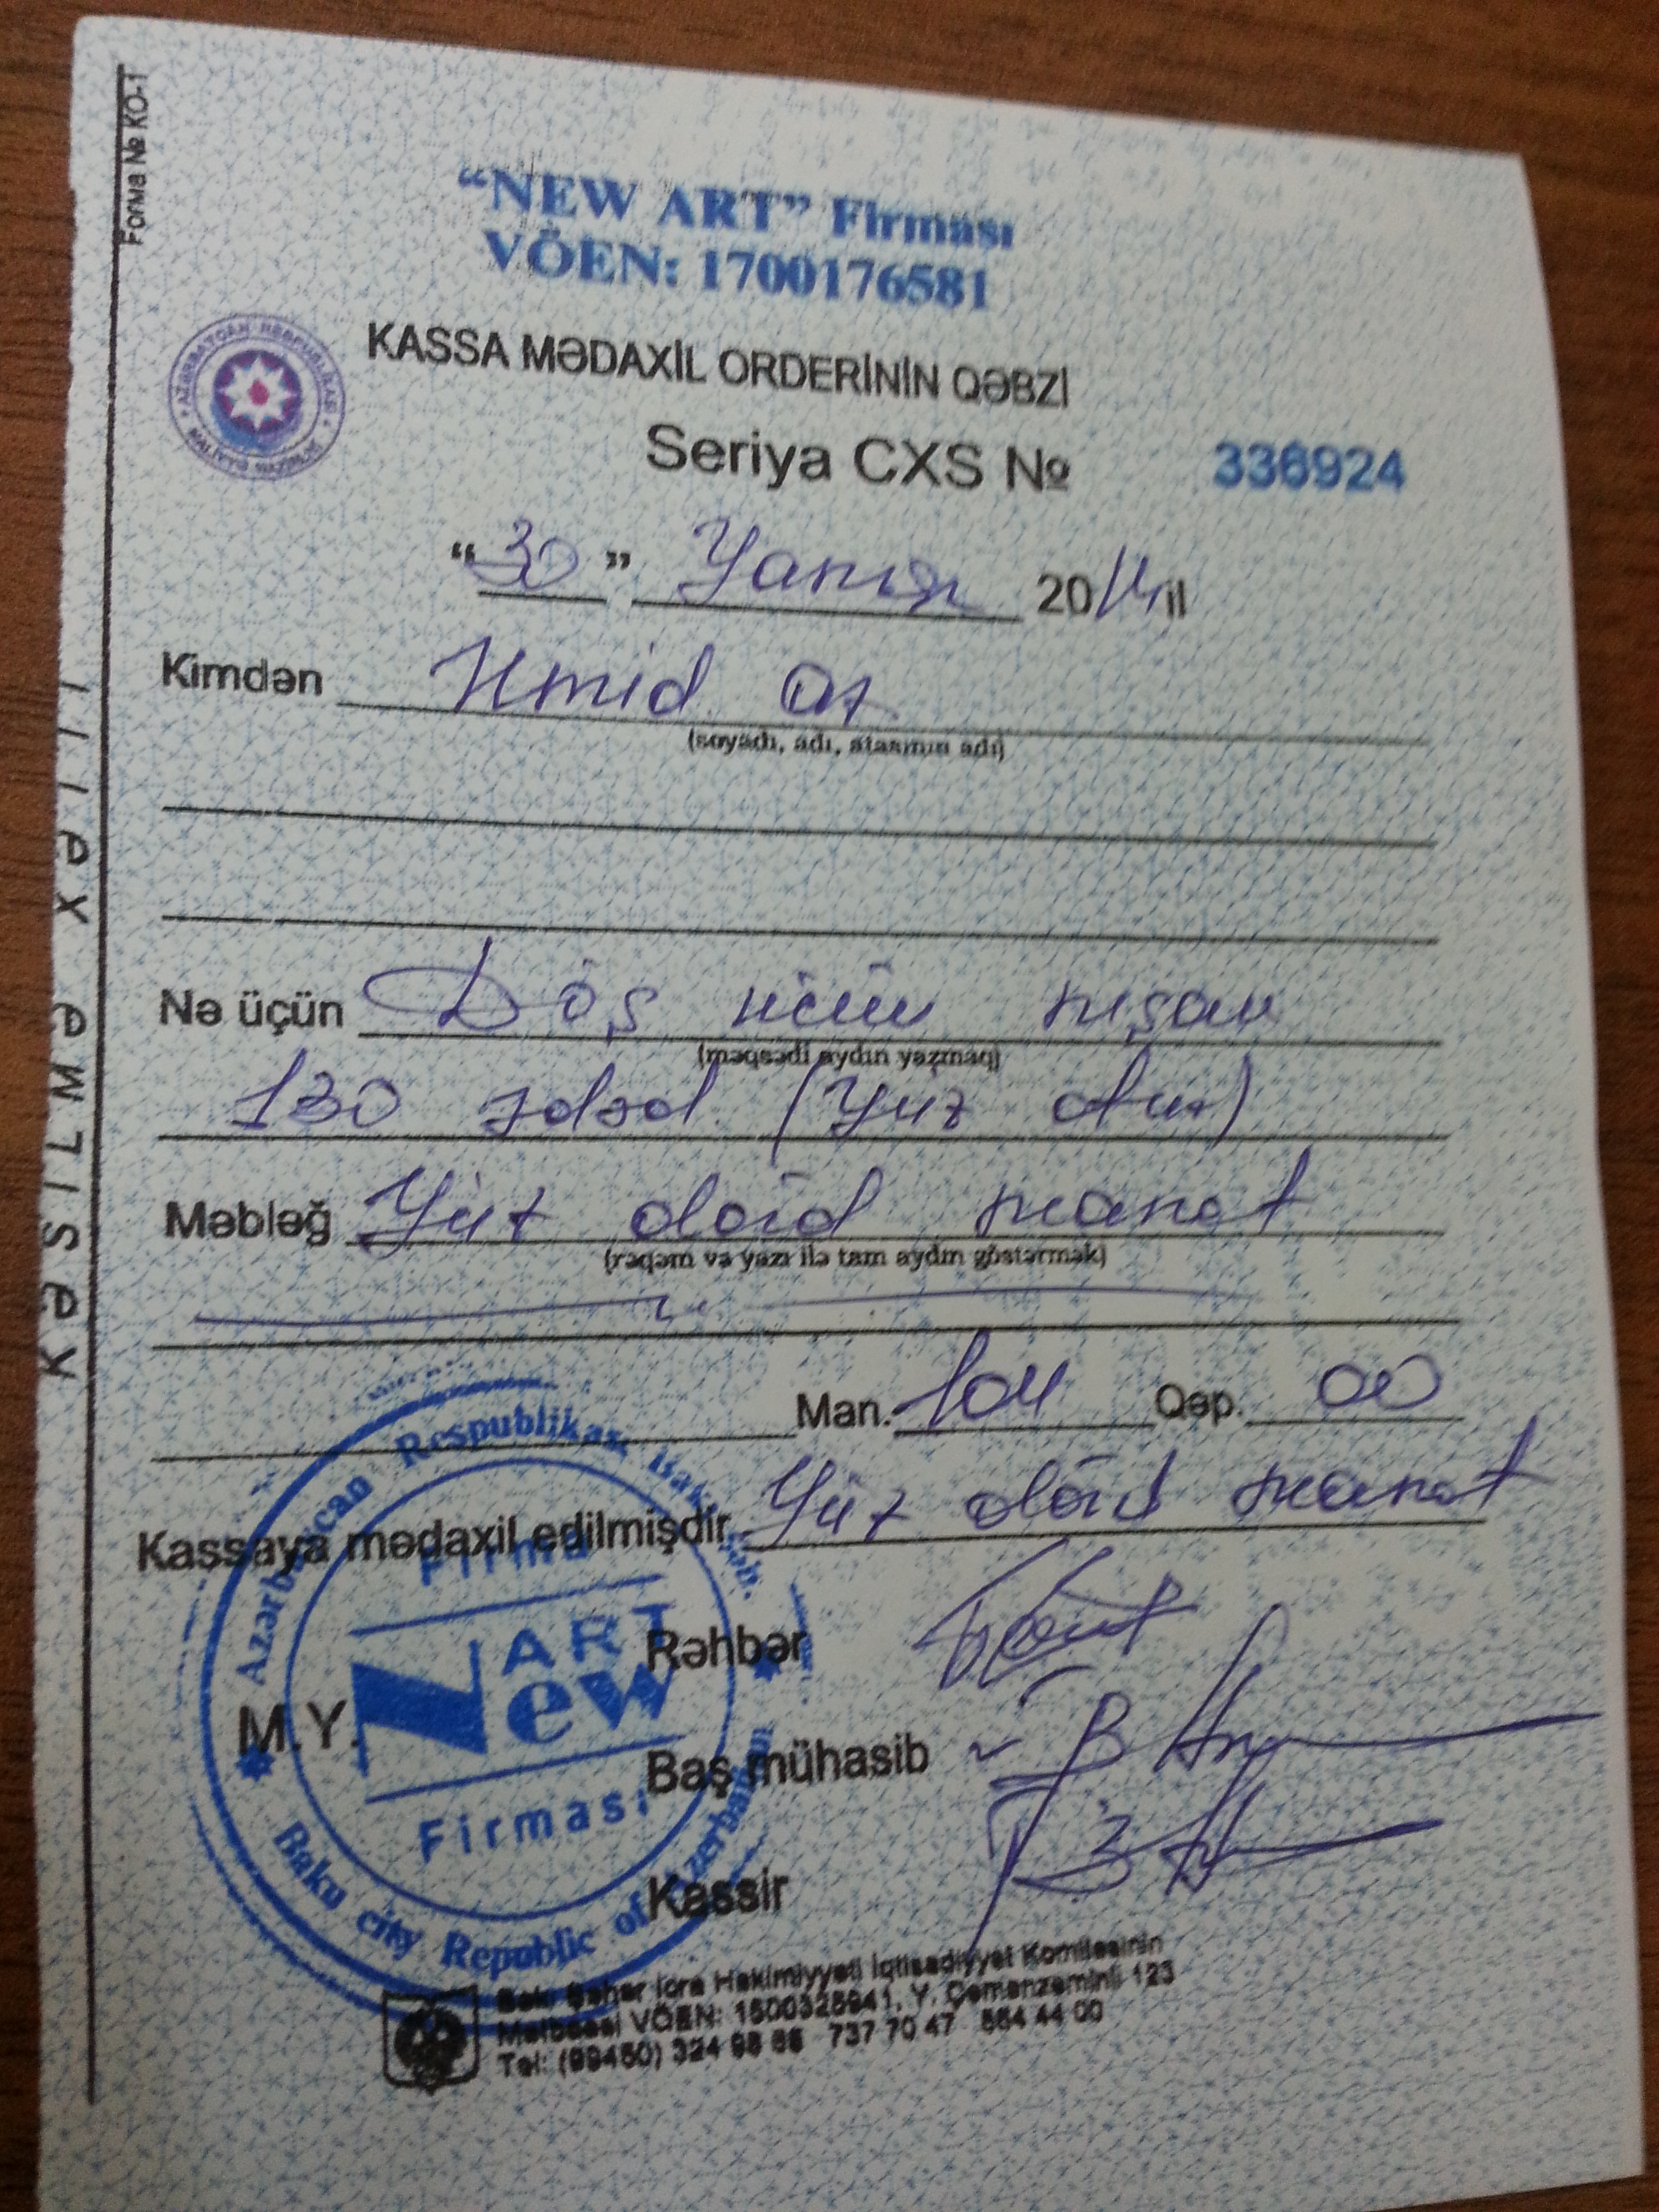 Forma № KO-1
"NEW ART" Firması
VÖEN: 1700176581
KASSA MƏDAXİL ORDERİNİN QƏBZİ
AZƏRBAYCAN RESPUBLİKASI
MALİYYƏ NAZİRLİYİ
Seriya CXS № 336924
"30" Yanvar 2014 il
Kimdən Umid
(soyadı, adı, atasının adı)
Nə üçün Döş üçün nişan
(məqsədi aydın yazmaq)
130 ədəd (yüz otuz)
Məbləğ Yüz dörd manat
(rəqəm və yazı ilə tam aydın göstərmək)
Man. 104 Qəp. 00
Kassaya mədaxil edilmişdir Yüz dörd manat
Rəhbər
M.Y.
Baş mühasib
Kassir
Azərbaycan Respublikası Bakı şəh.
Firma
ART
New
Firması
Baku city Republic of Azerbaijan
Bakı Şəhər İcra Hakimiyyəti İqtisadiyyat Komitəsinin
Mətbəəsi VÖEN: 1500325941, Y. Çəmənzəminli 123
Tel: (99450) 324 98 86 737 70 47 564 44 00
KƏSİLMƏ XƏTTİ